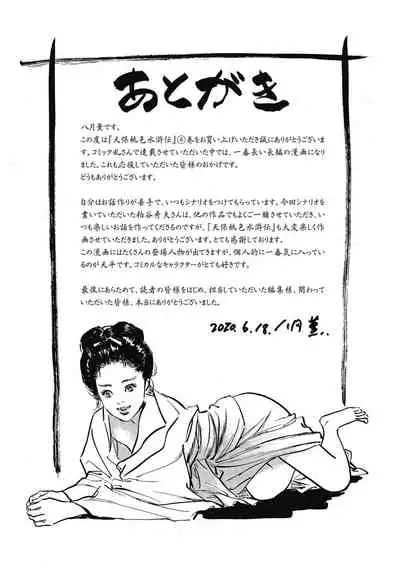 あとがき
八月薫です。
この度は『天保桃色水滸伝』④巻をお買い上げいただき誠にありがとうございま
す。コミック乱さんで連載させていただいた中では、一番長い長編の漫画になり
ました。これも応援していただいた皆様のおかげです。
どうもありがとうございます。
自分はお話作りが苦手で、いつもシナリオをつけてもらっています。今回シナリオを
書いていただいた粕谷秀夫さんは、他の作品でもよくご一緒させていただき、い
つも楽しいお話を作ってくださるのですが、『天保桃色水滸伝』も大変楽しく作
画させていただきました。ありがとうございます。とても感謝しております。
この漫画にはたくさんの登場人物が出てきますが、個人的に一番気に入っている
のが天平です。コミカルなキャラクターがとても好きです。
最後にあらためて、読者の皆様をはじめ、担当していただいた編集様、関わって
いただいた皆様、本当にありがとうございました。
2020.6.18. 八月薫..